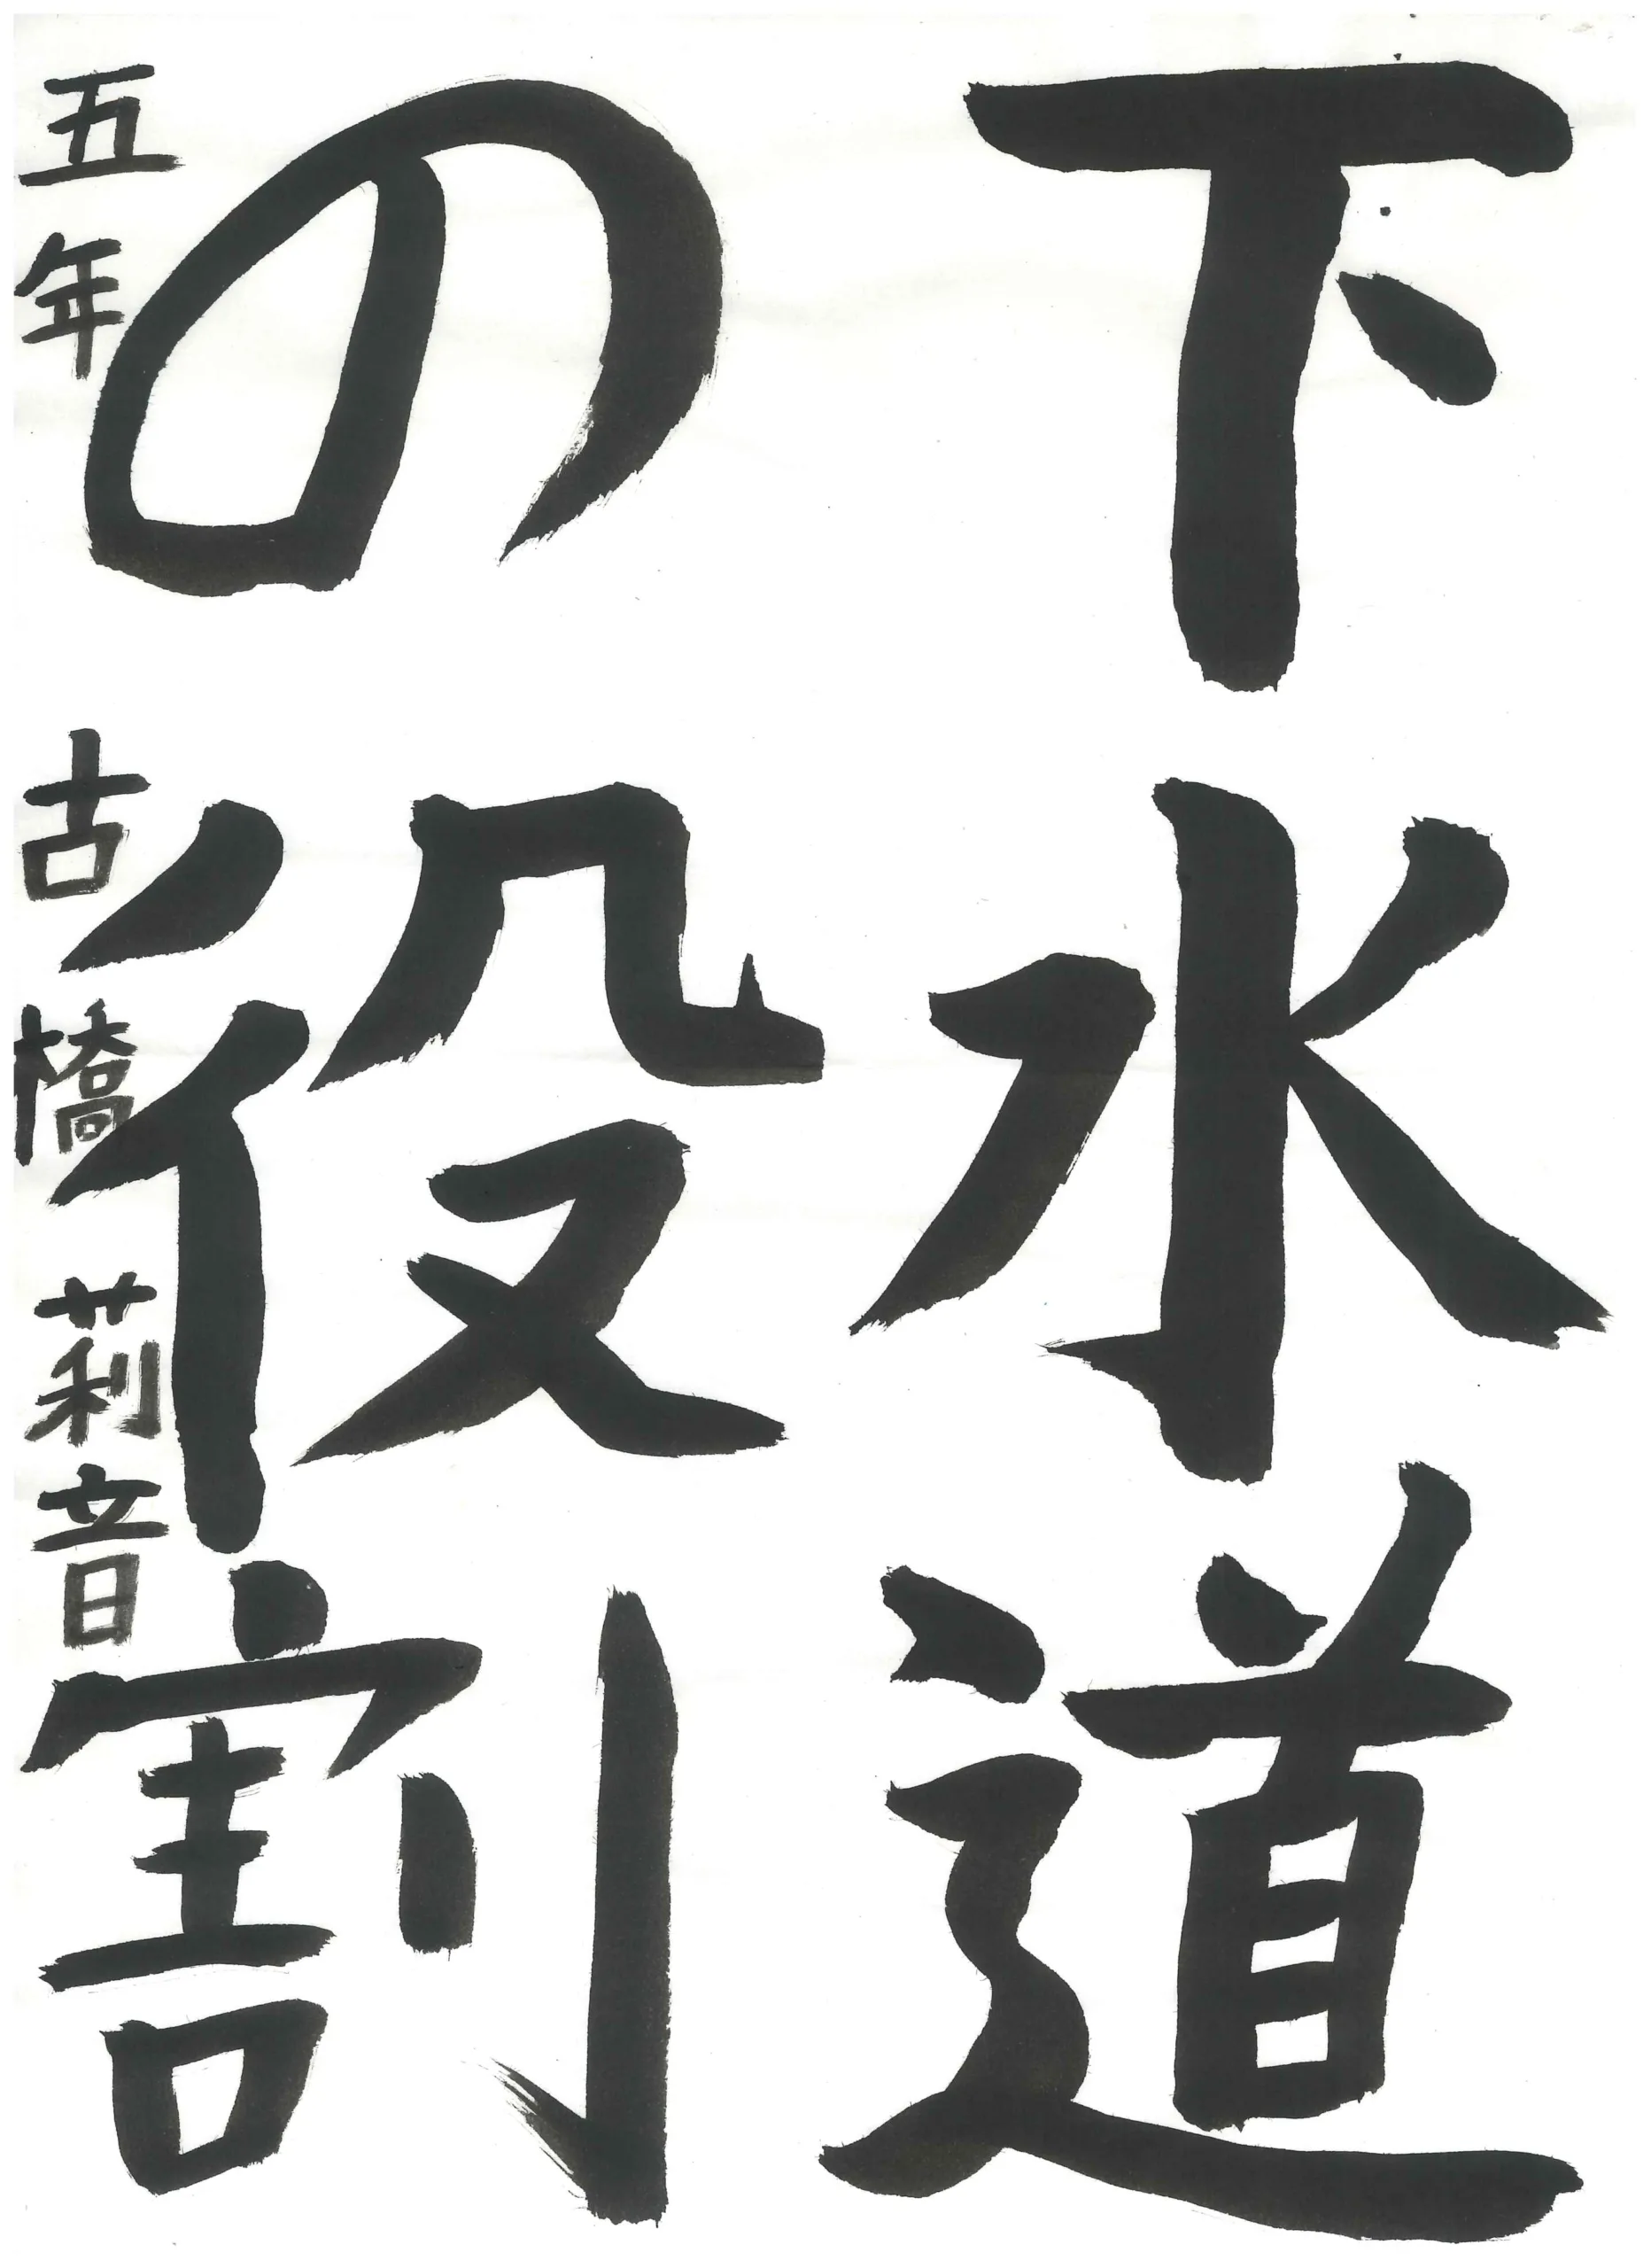 下水道
の役割
五年 古橋 莉音